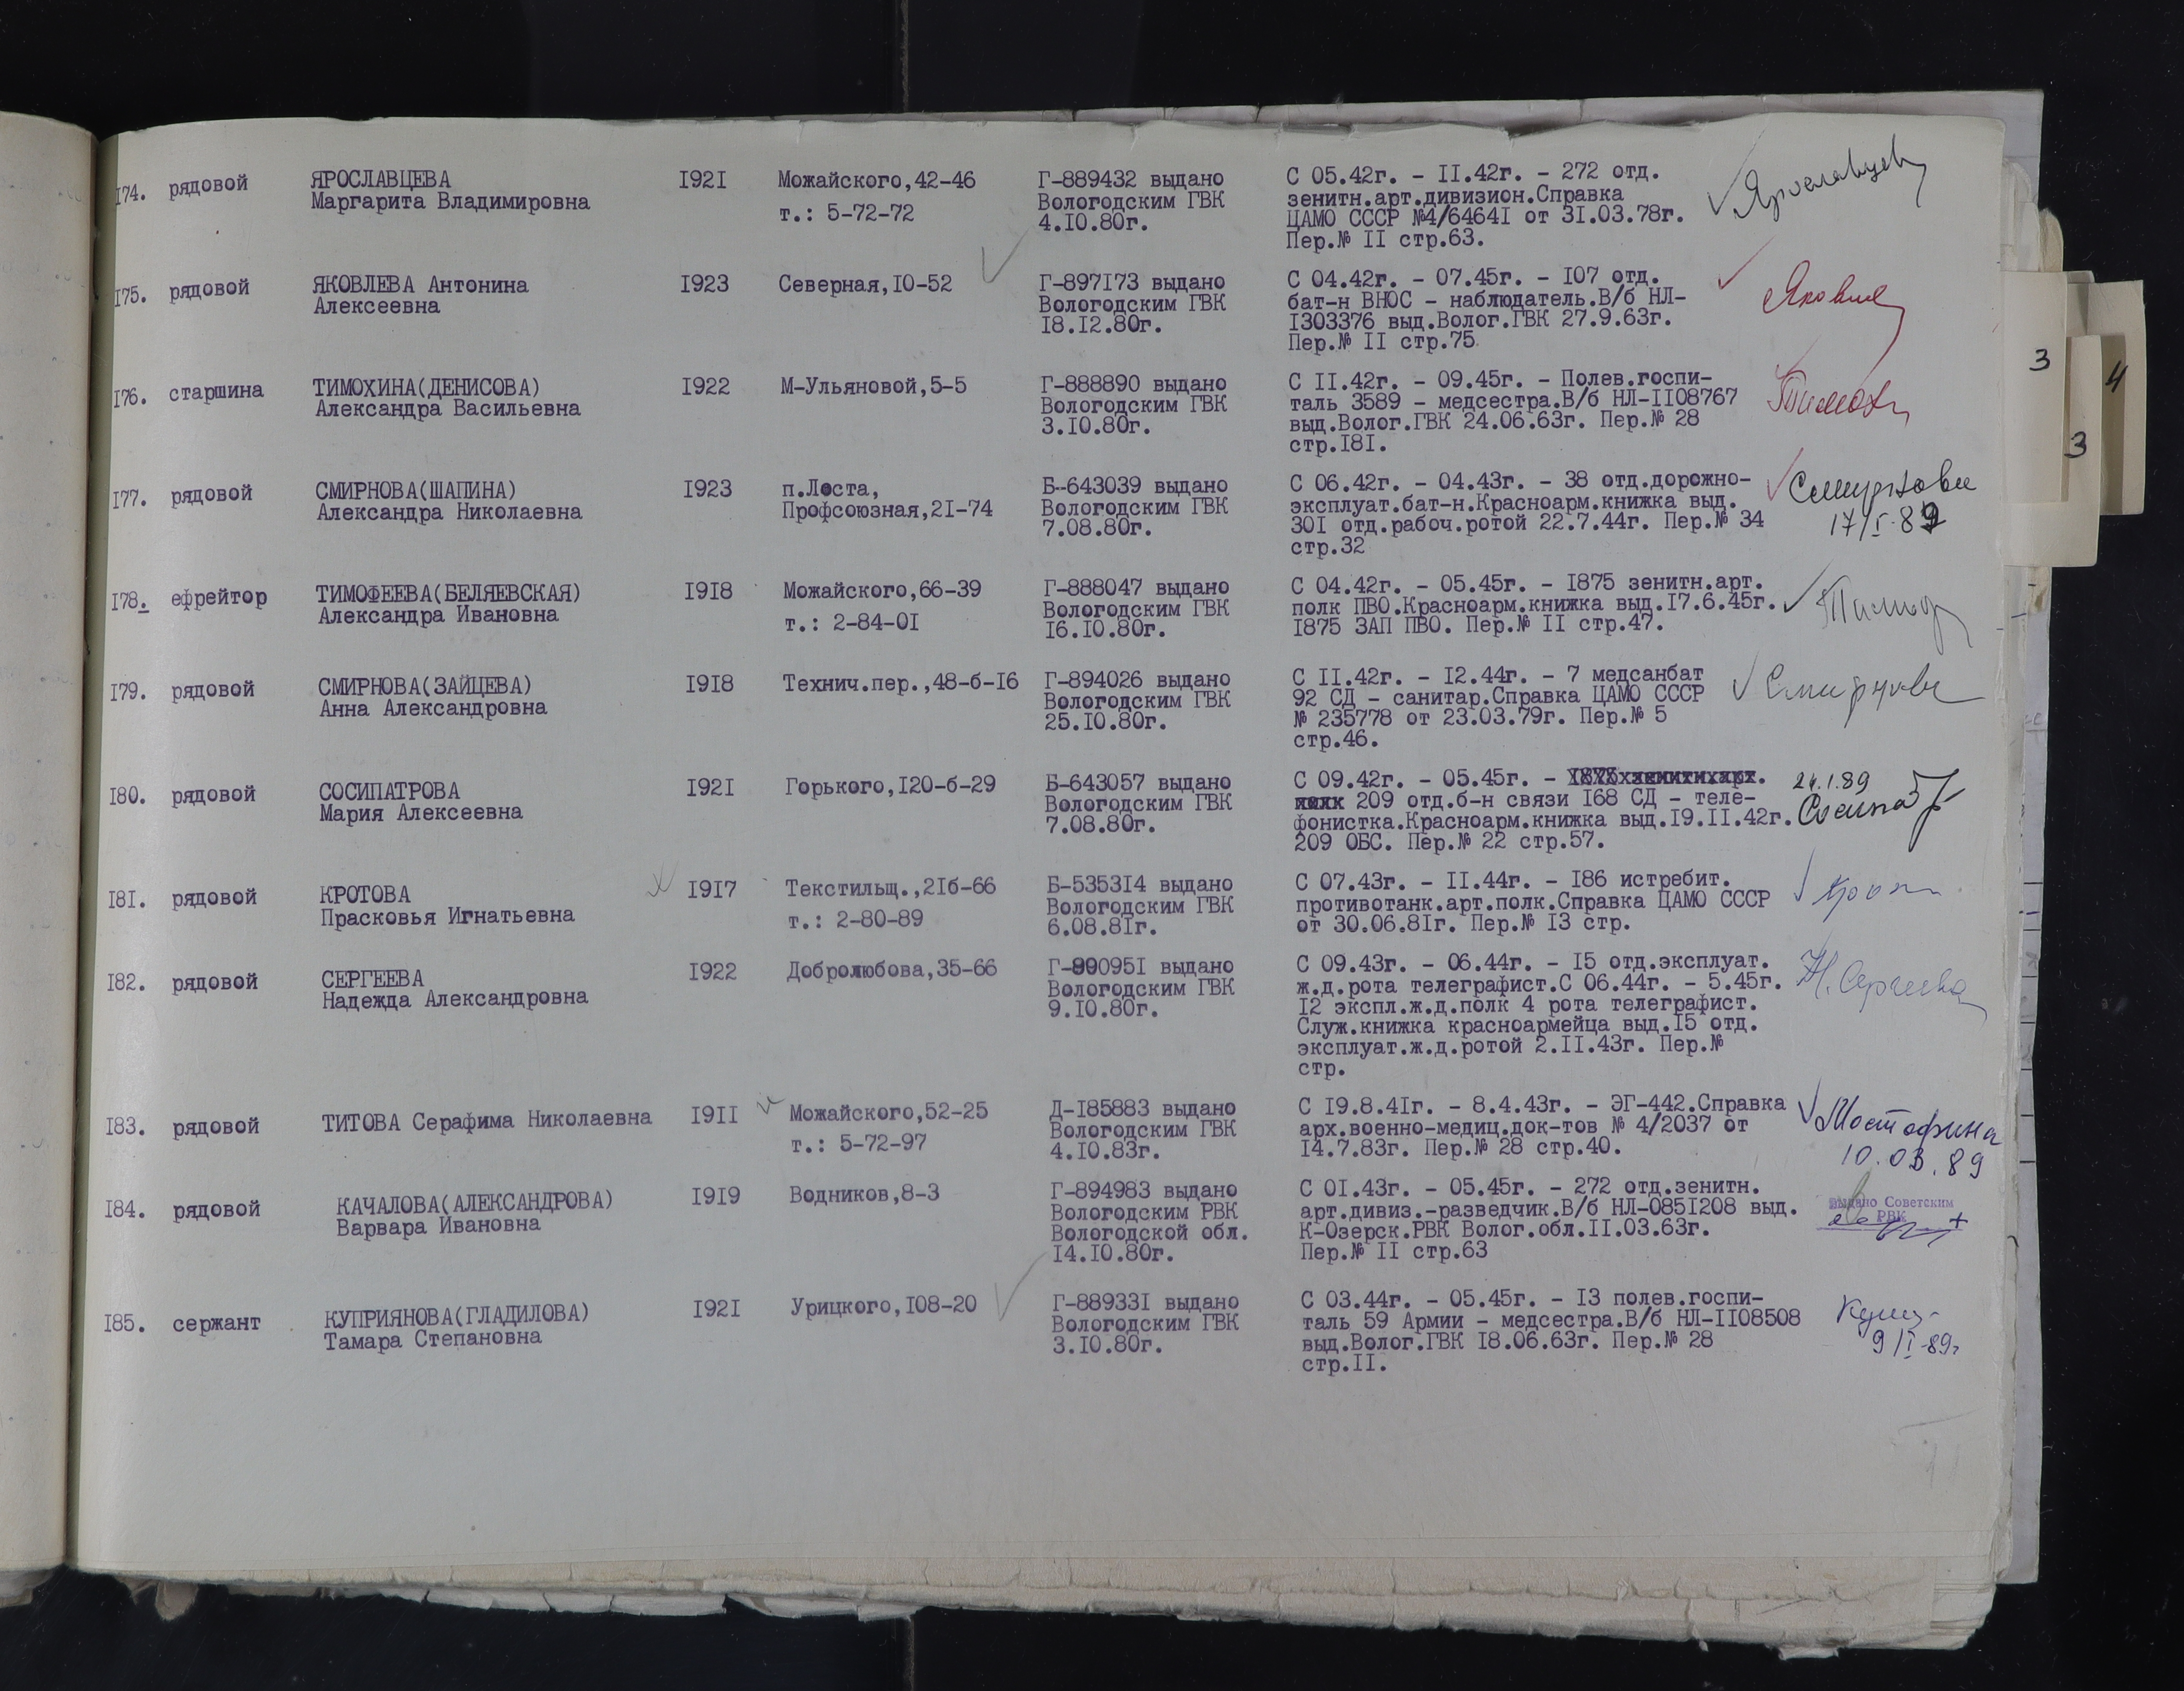 174. рядовой ЯРОСЛАВЦЕВА 1921 Можайского,42-46 Г-889432 выдано С 05.42г. - 11.42г. - 272 отд.
Маргарита Владимировна т.: 5-72-72 Вологодским ГВК зенитн.арт.дивизион.Справка
4.10.80г. ЦАМО СССР №4/64641 от 31.03.78г.
Пер.№ 11 стр.63.
175. рядовой ЯКОВЛЕВА Антонина 1923 Северная,10-52 Г-897173 выдано С 04.42г. - 07.45г. - 107 отд.
Алексеевна Вологодским ГВК бат-н ВНОС - наблюдатель.В/б НЛ-
18.12.80г. 1303376 выд.Волог.ГВК 27.9.63г.
Пер.№ 11 стр.75.
176. старшина ТИМОХИНА(ДЕНИСОВА) 1922 М-Ульяновой,5-5 Г-888890 выдано С 11.42г. - 09.45г. - Полев.госпи-
Александра Васильевна Вологодским ГВК таль 3589 - медсестра.В/б НЛ-1108767
3.10.80г. выд.Волог.ГВК 24.06.63г. Пер.№ 28
стр.181.
177. рядовой СМИРНОВА(ШАПИНА) 1923 п.Лоста, Б-643039 выдано С 06.42г. - 04.43г. - 38 отд.дорожно- Смирнова
Александра Николаевна Профсоюзная,21-74 Вологодским ГВК эксплуат.бат-н.Красноарм.книжка выд. 17/I-89
7.08.80г. 301 отд.рабоч.ротой 22.7.44г. Пер.№ 34
стр.32
178. ефрейтор ТИМОФЕЕВА(БЕЛЯЕВСКАЯ) 1918 Можайского,66-39 Г-888047 выдано С 04.42г. - 05.45г. - 1875 зенитн.арт.
Александра Ивановна т.: 2-84-01 Вологодским ГВК полк ПВО.Красноарм.книжка выд.17.6.45г.
16.10.80г. 1875 ЗАП ПВО. Пер.№ 11 стр.47.
179. рядовой СМИРНОВА(ЗАЙЦЕВА) 1918 Технич.пер.,48-б-16 Г-894026 выдано С 11.42г. - 12.44г. - 7 медсанбат Смирнова
Анна Александровна Вологодским ГВК 92 СД - санитар.Справка ЦАМО СССР
25.10.80г. № 235778 от 23.03.79г. Пер.№ 5
стр.46.
180. рядовой СОСИПАТРОВА 1921 Горького,120-б-29 Б-643057 выдано С 09.42г. - 05.45г. - 24.1.89
Мария Алексеевна Вологодским ГВК 209 отд.б-н связи 168 СД - теле-
7.08.80г. фонистка.Красноарм.книжка выд.19.11.42г.
209 ОБС. Пер.№ 22 стр.57.
181. рядовой КРОТОВА 1917 Текстильщ.,21б-66 Б-535314 выдано С 07.43г. - 11.44г. - 186 истребит.
Прасковья Игнатьевна т.: 2-80-89 Вологодским ГВК противотанк.арт.полк.Справка ЦАМО СССР
6.08.81г. от 30.06.81г. Пер.№ 13 стр.
182. рядовой СЕРГЕЕВА 1922 Добролюбова,35-66 Г-890951 выдано С 09.43г. - 06.44г. - 15 отд.эксплуат. Н.Сергеева
Надежда Александровна Вологодским ГВК ж.д.рота телеграфист.С 06.44г. - 5.45г.
9.10.80г. 12 экспл.ж.д.полк 4 рота телеграфист.
Служ.книжка красноармейца выд.15 отд.
эксплуат.ж.д.ротой 2.11.43г. Пер.№
стр.
183. рядовой ТИТОВА Серафима Николаевна 1911 Можайского,52-25 Д-185883 выдано С 19.8.41г. - 8.4.43г. - ЭГ-442.Справка
т.: 5-72-97 Вологодским ГВК арх.военно-медиц.док-тов № 4/2037 от
4.10.83г. 14.7.83г. Пер.№ 28 стр.40. 10.03.89
184. рядовой КАЧАЛОВА(АЛЕКСАНДРОВА) 1919 Водников,8-3 Г-894983 выдано С 01.43г. - 05.45г. - 272 отд.зенитн. Выдано Советским
Варвара Ивановна Вологодским РВК арт.дивиз.-разведчик.В/б НЛ-0851208 выд. РВК
Вологодской обл. К-Озерск.РВК Волог.обл.11.03.63г.
14.10.80г. Пер.№ 11 стр.63
185. сержант КУПРИЯНОВА(ГЛАДИЛОВА) 1921 Урицкого,108-20 Г-889331 выдано С 03.44г. - 05.45г. - 13 полев.госпи-
Тамара Степановна Вологодским ГВК таль 59 Армии - медсестра.В/б НЛ-1108508
3.10.80г. выд.Волог.ГВК 18.06.63г. Пер.№ 28 9/I-89г
стр.11.
3
4
3